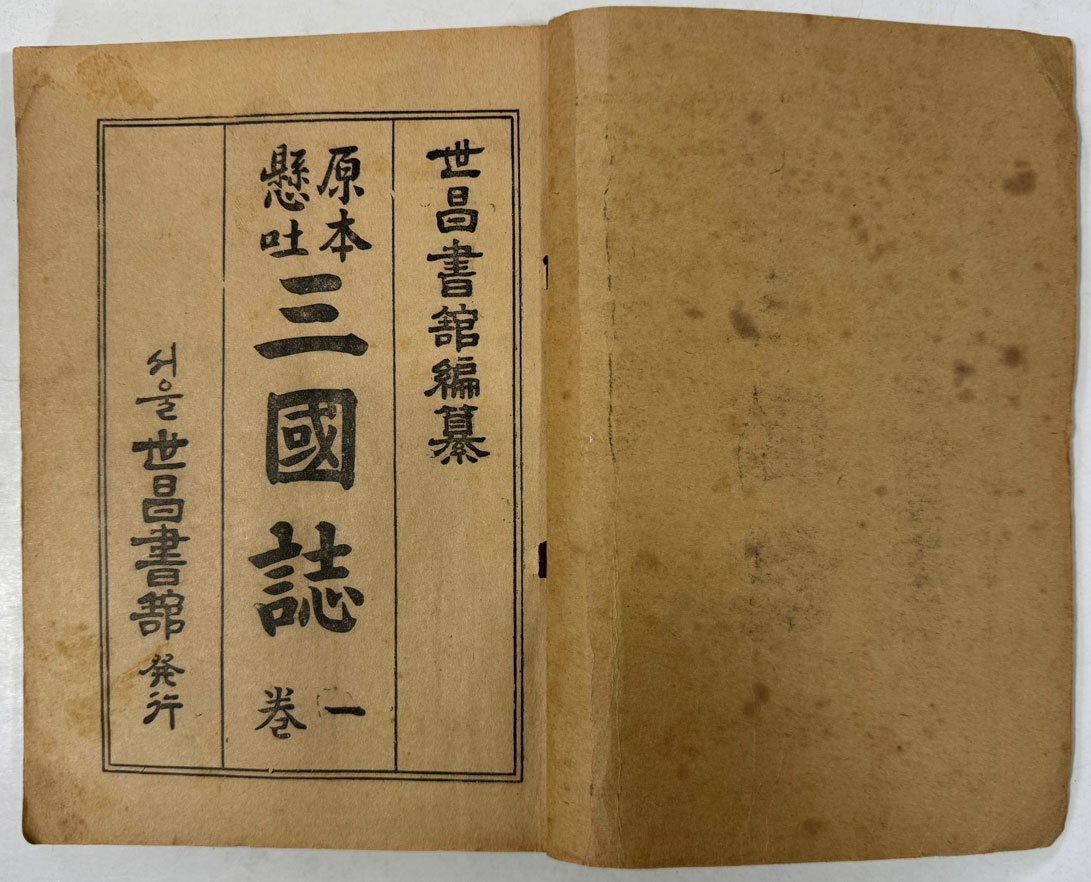 世昌書舘編纂
原本
懸吐
三國誌
一
卷
서울世昌書舘発行